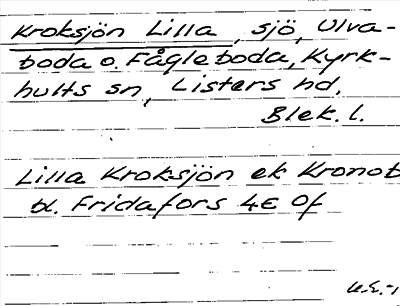 Kroksjön Lilla, sjö, Ulva-
boda o. Fågleboda, Kyrk-
hults sn, Listers hd,
Blek. l.
Lilla Kroksjön ek Kronot
bl. Fridafors 4E Of